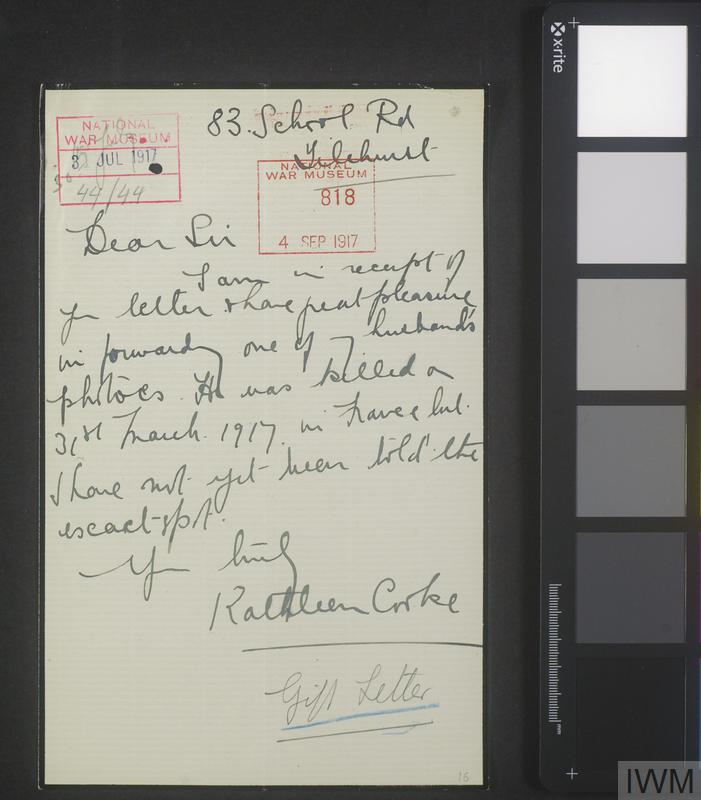 x-rite
NATIONAL
WAR MUSEUM
3 JUL 1917
44/44
83. School Rd
Tilehurst
NATIONAL
WAR MUSEUM
818
4 SEP 1917
Dear Sir
I am in receipt of
yr letter & have great pleasure
in forwarding one of my husband's
photoes. He was killed on
31st March. 1917. in France but.
I have not yet been told the
exact spot.
Yrs truly
Kathleen Cooke
Gift Letter
16
mm
IWM